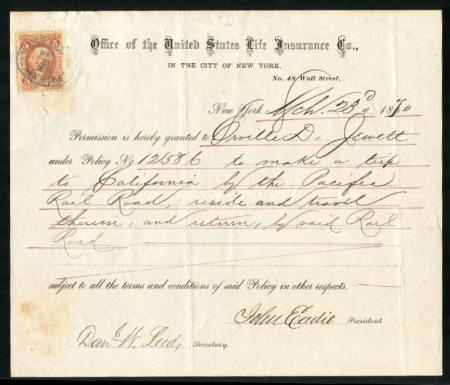 Office of the United States Life Insurance Co.,
IN THE CITY OF NEW YORK,
No. 48 Wall Street,
New York Mch. 23d 1870
Permission is hereby granted to Orville D. Jewett
under Policy No 12586 to make a trip
to California by the Pacific
Rail Road, reside and travel
therein, and return, by said Rail
Road
subject to all the terms and conditions of said Policy in other respects.
John Eadie President
Secretary.